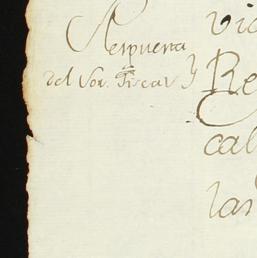 Respuesta
del Sor. Fiscal y
vi
Re
cal
las